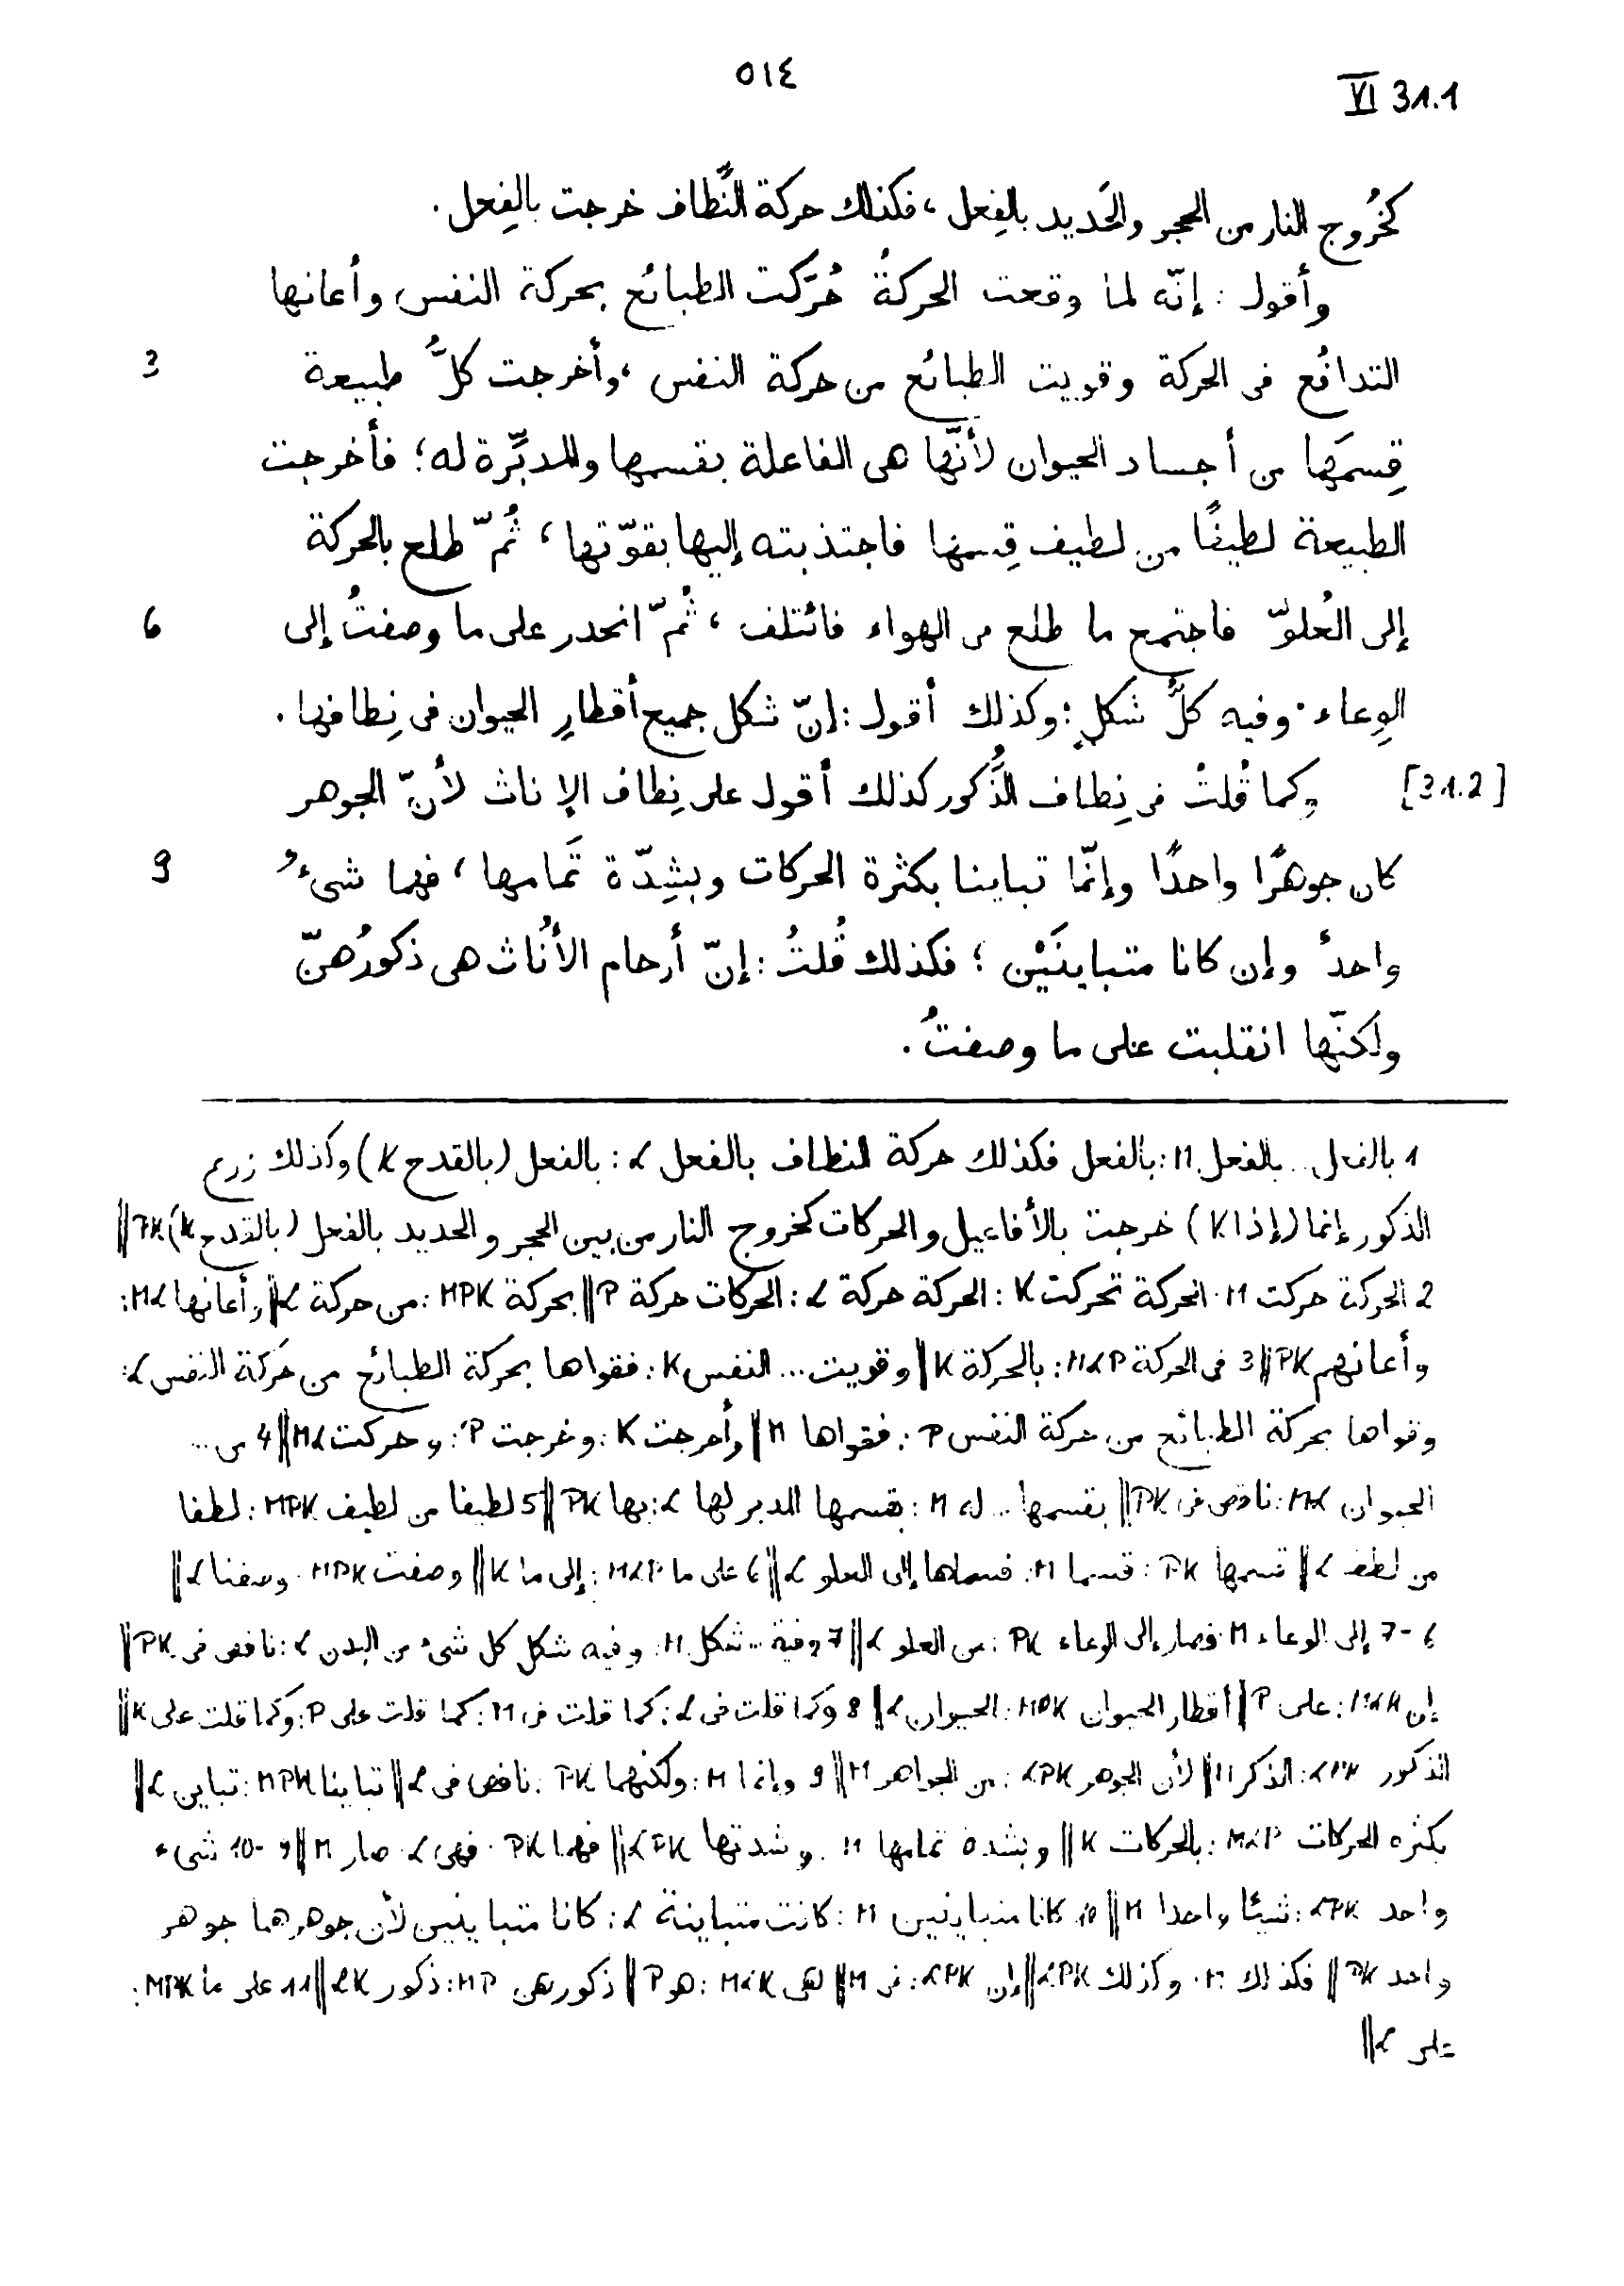 ٥١٤
VI 31.1
كخُروج النار من الحجر والحَديد بالفِعل، فكذلك حركة النُّطاف خرجت بالفِعل.
وأقول : إنّه لما وقعت الحركةُ حُرّكت الطبائع بحركة النفس، وأعانها
3 التدافُع فى الحركة وقويت الطبائع من حركة النفس، وأخرجت كلُّ طبيعة
قِسمَها من أجساد الحيوان لأنّها هى الفاعلة بقسمها والمدبِّرة له؛ فأخرجت
الطبيعة لطيفًا من لطيف قِسمها فاجتذبته إليها بقوّتها، ثُمّ طلع بالحركة
6 إلى العُلوّ فاجتمع ما طلع من الهواء فائتلف، ثُمّ انحدر على ما وصفتُ إلى
الوِعاء. وفيه كلُّ شكلٍ؛ وكذلك أقول : إنّ شكل جميع أقطارِ الحيوان فى نِطافها.
[31.2] وكما قُلتُ فى نِطاف الذُّكور كذلك أقول على نِطاف الإناث لأنّ الجوهر
9 كان جوهرًا واحدًا وإنّما تباينا بكثرة الحركات وبشِدّة تَمامها، فهما شىءٌ
واحدٌ وإن كانا متباينَيْن؛ فكذلك قُلتُ : إنّ أرحام الأُناث هى ذكورُهنّ
ولكنّها انقلبت على ما وصفتُ.
1 بالفعل... بالفعل M: بالفعل فكذلك حركة النطاف بالفعل L: بالفعل (بالقدح K) وكذلك زرع
الذكور إنما (إذا K) خرجت بالأفاعيل والحركات كخروج النار من بين الحجر والحديد بالفعل (بالقدح K) PK ||
2 الحركة حركت M: الحركة تحركت K: الحركة حركة L: الحركات حركة P || بحركة MPK: من حركة L || وأعانها ML:
وأعانهم PK || 3 فى الحركة MLP: بالحركة K || وقويت... النفس K: فقواها بحركة الطبائع من حركة النفس L:
وقواها بحركة الطبائع من حركة النفس P: فقواها M || وأخرجت K: وخرجت P: وحركت ML || 4 من...
الحيوان ML: ناقص فى PK || بقسمها... له M: بقسمها المدبر لها L: بها PK || 5 لطيفا من لطيف MPK: لطفا
من لطف L || قسمها PK: قسما M: قسماها إلى العلو L || 6 على ما MLP: إلى ما K || وصفت MPK: وصفنا L ||
6-7 إلى الوعاء M: فصار إلى الوعاء PK: من العلو L || 7 وفيه... شكل M: وفيه شكل كل شىء من البدن L: ناقص فى PK ||
إن MLK: على P || أقطار الحيوان MPK: الحيوان L || 8 وكما قلت فى L: كما قلت فى M: كما قلت على P: وكما قلت على K ||
الذكور LPK: الذكر M || لأن الجوهر LPK: من الجواهر M || 9 وإنما M: ولكنهما PK: ناقص فى L || تباينا MPK: تباين L ||
بكثره الحركات MLP: بالحركات K || وبشدة تمامها M: وشدتها LPK || فهما PK: فهى L: صار M || 9-10 شىء
واحد LPK: شيئا واحدا M || 10 كانا متباينين M: كانت متباينة L: كانا متباينين لأن جوهرهما جوهر
واحد PK || فكذلك M: وكذلك LPK || إن LPK: فى M || هى MLK: هو P || ذكورهن MP: ذكور LK || 11 على ما MPK:
على L ||